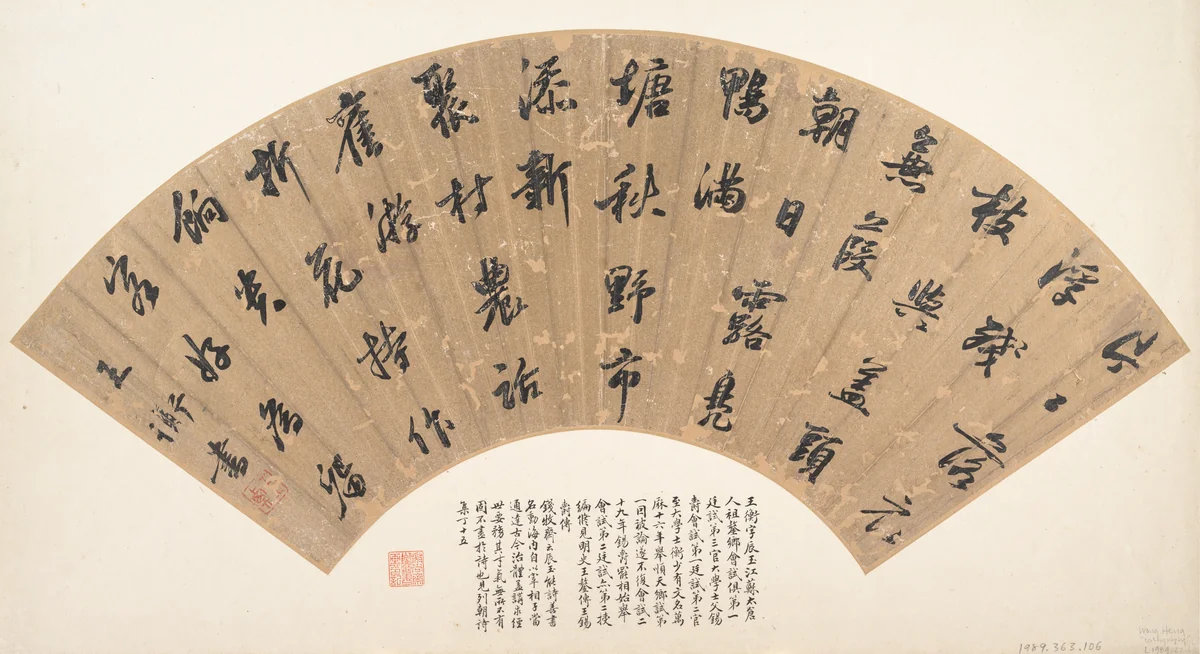 小〻荷衣
浮殘
枝與蓋頭
無葭
朝日露見
鴨滿
塘秋野市
添新
聚村農話
舊游
折花持作
餉
好為留
王衡書
王衡字辰玉江蘇太倉
人祖鏊鄉會試俱第一
廷試第三官大學士父錫
爵會試第一廷試第二官
至大學士衡少有文名萬
麻十六年舉順天鄉試第
一因被論遂不復會試二
十九年錫爵罷相始舉
會試第二廷試亦第二授
編修見明史王鏊傳王錫
爵傳
錢牧齋云辰玉能詩善書
名動海內自以宰相子當
通達古今治體孟講求經
世要務其才氣無所不有
固不盡於詩也見列朝詩
集丁十五
1989.363.106
Wang Heng